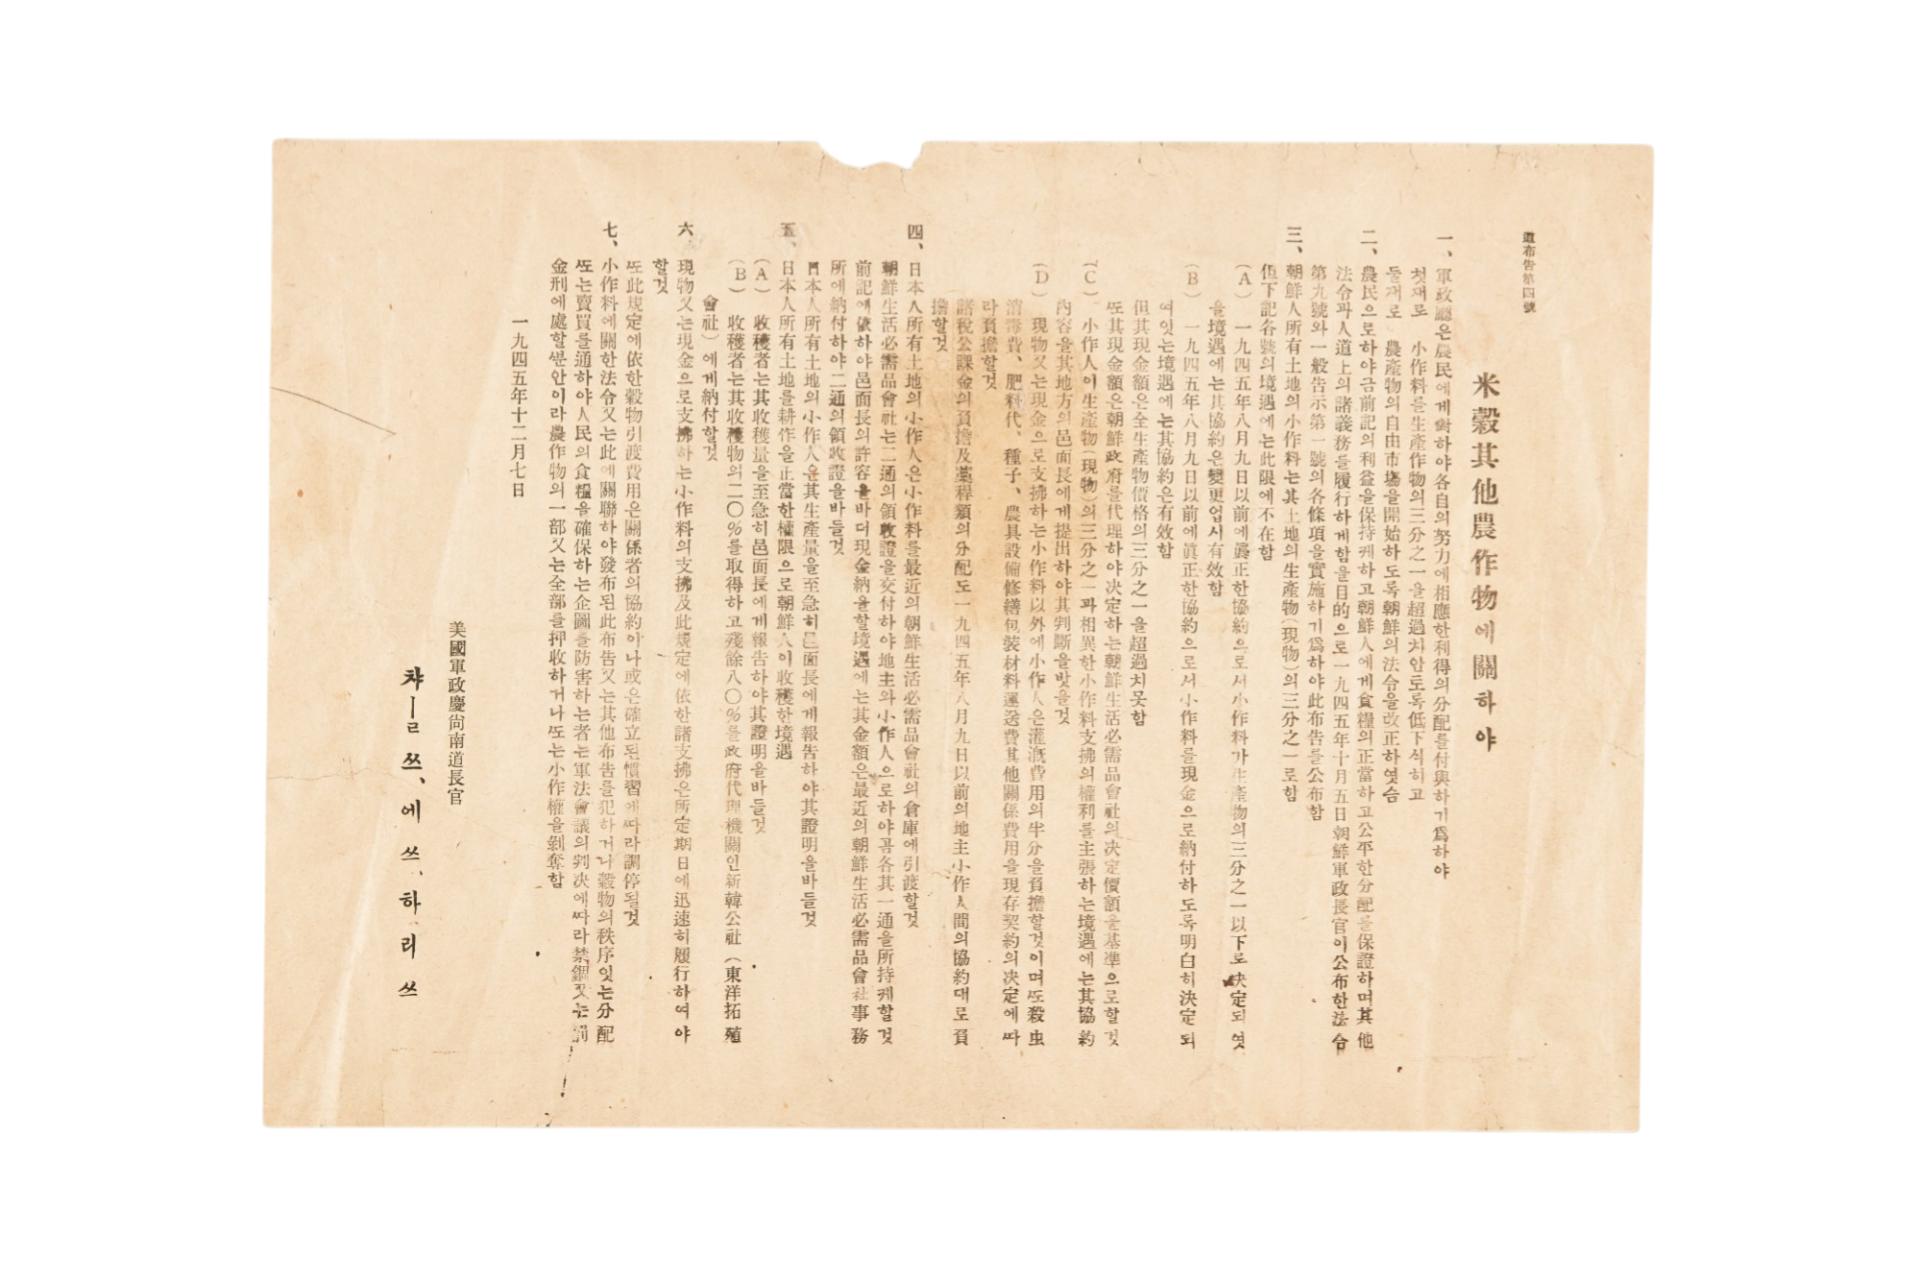 道布告第四號
米穀其他農作物에關하야
一、軍政廳은農民에게對하야各自의努力에相應한利得의分配를付與하기爲하야
첫재로 小作料를生產作物의三分之一을超過치안토록低下식히고
둘재로 農產物의自由市場을開始하도록朝鮮의法令을改正하엿슴
二、農民으로하야금前記의利益을保持케하고朝鮮人에게食糧의正當하고公平한分配를保證하며其他
法令과人道上의諸義務를履行하게함을目的으로一九四五年十月五日朝鮮軍政長官이公布한法令
第九號와一般告示第一號의各條項을實施하기爲하야此布告를公布함
三、朝鮮人所有土地의小作料는其土地의生產物(現物)의三分之一로함
但下記各號의境遇에는此限에不在함
(A) 一九四五年八月九日以前에眞正한協約으로서小作料가生產物의三分之一以下로決定되엿
을境遇에는其協約은變更업시有效함
(B) 一九四五年八月九日以前에眞正한協約으로서小作料를現金으로納付하도록明白히決定되
여잇는境遇에는其協約은有效함
但其現金額은全生產物價格의三分之一을超過치못함
또其現金額은朝鮮政府를代理하야決定하는朝鮮生活必需品會社의決定價額을基準으로할것
(C) 小作人이生產物(現物)의三分之一과相異한小作料支拂의權利를主張하는境遇에는其協約
內容을其地方의邑面長에게提出하야其判斷을밧을것
(D) 現物又는現金으로支拂하는小作料以外에小作人은灌漑費用의半分을負擔할것이며또殺虫
消毒費、肥料代、種子、農具設備修繕包裝材料運送費其他關係費用을現存契約의決定에따
라負擔할것
諸稅公課金의負擔及藁稈類의分配도一九四五年八月九日以前의地主小作人間의協約대로負
擔할것
四、日本人所有土地의小作人은小作料를最近의朝鮮生活必需品會社의倉庫에引渡할것
朝鮮生活必需品會社는二通의領收證을交付하야地主와小作人으로하야곰各其一通을所持케할것
前記에依하야邑面長의許容을바더現金納을할境遇에는其金額은最近의朝鮮生活必需品會社事務
所에納付하야二通의領收證을바들것
日本人所有土地의小作人은其生產量을至急히邑面長에게報告하야其證明을바들것
五、日本人所有土地를耕作을正當한權限으로朝鮮人이收穫한境遇
(A) 收穫者는其收穫量을至急히邑面長에게報告하야其證明을바들것
(B) 收穫者는其收穫物의二〇%를取得하고殘餘八〇%를政府代理機關인新韓公社(東洋拓殖
會社)에게納付할것
六、現物又는現金으로支拂하는小作料의支拂及此規定에依한諸支拂은所定期日에迅速히履行하여야
할것
또此規定에依한穀物引渡費用은關係者의協約이나或은確立된慣習에따라調停될것
七、小作料에關한法令又는此에關聯하야發布된此布告又는其他布告를犯하거나穀物의秩序잇는分配
또는賣買를通하야人民의食糧을確保하는企圖를防害하는者는軍法會議의判決에따라禁錮又는罰
金刑에處할뿐안이라農作物의一部又는全部를押收하거나또는小作權을剝奪함
一九四五年十二月七日
美國軍政慶尙南道長官
챠ㅣㄹ쓰、에쓰、하、리쓰